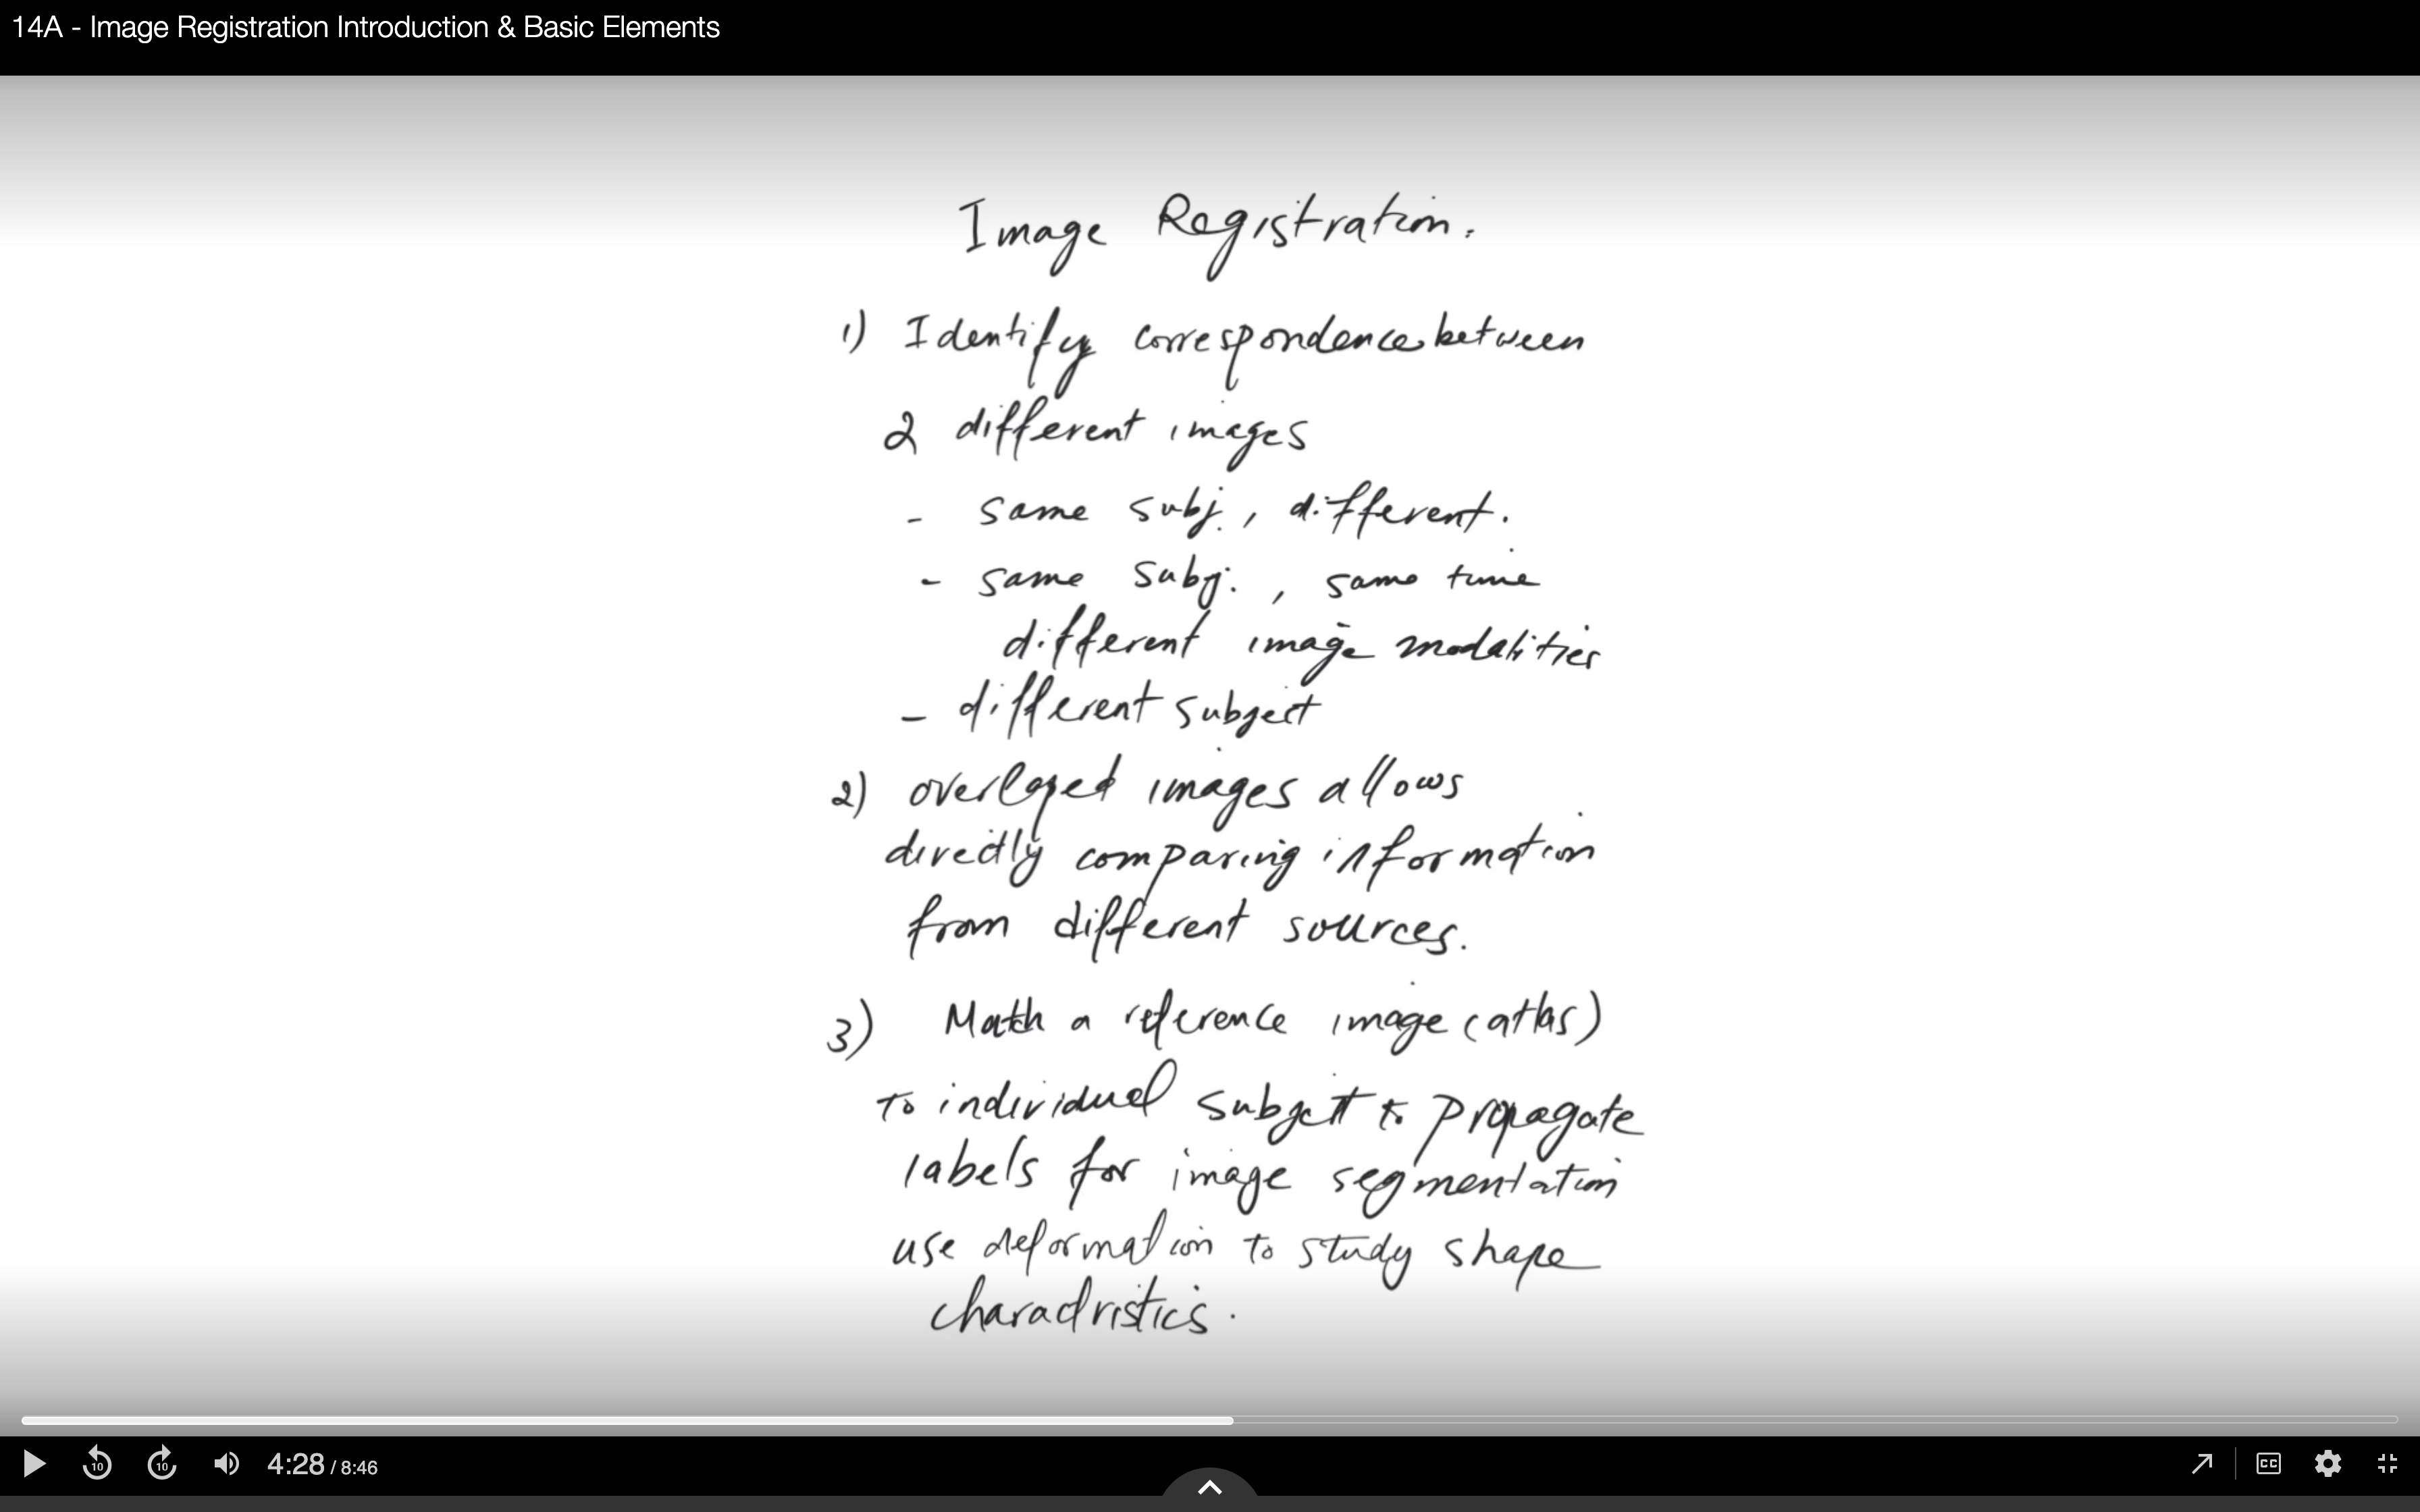 14A - Image Registration Introduction & Basic Elements
Image Registration.
1) Identify correspondence between
2 different images
- same subj., different.
- same subj., same time
different image modalities
- different subject
2) overlaped images allows
directly comparing information
from different sources.
3) Match a reference image (atlas)
to individual subject to propagate
labels for image segmentation
use deformation to study shape
charactristics.
10 10 4:28 / 8:46 CC